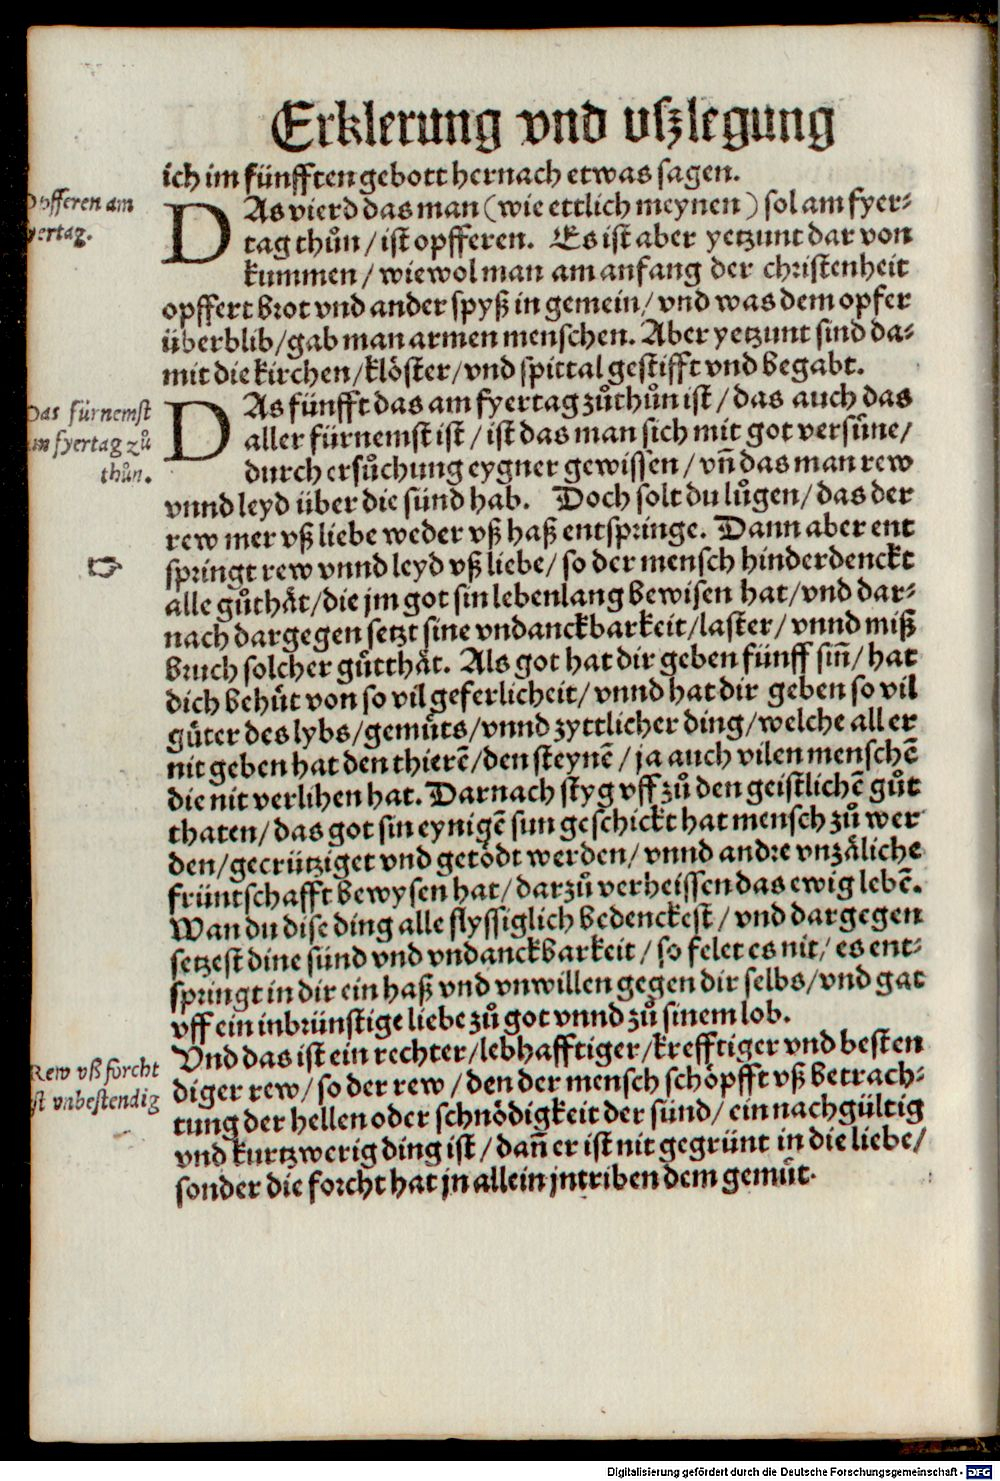 Erklerung vnd vſzlegung
ich im fünfften gebott hernach etwas sagen.
Opfferen am
fyertag.
DAs vierd das man (wie ettlich meynen) sol am fyer-
tag thůn / ist opfferen. Es ist aber yetzunt dar von
kummen / wiewol man am anfang der christenheit
opffert brot vnd ander spyß in gemein / vnd was dem opfer
überblib / gab man armen menschen. Aber yetzunt sind da-
mit die kirchen / klöster / vnd spittal gestifft vnd begabt.
Das fürnemst
am fyertag zů
thůn.
DAs fünfft das am fyertag zůthůn ist / das auch das
aller fürnemst ist / ist das man sich mit got versüne /
durch ersůchung eygner gewissen / vn̄ das man rew
vnnd leyd über die sünd hab. Doch solt du lůgen / das der
rew mer vß liebe weder vß haß entspringe. Dann aber ent
springt rew vnnd leyd vß liebe / so der mensch hinderdenckt
alle gůthät / die jm got sin lebenlang bewisen hat / vnd dar-
nach dargegen setzt sine vndanckbarkeit / laster / vnnd miß
bruch solcher gůtthät. Als got hat dir geben fünff sin̄ / hat
dich behüt von so vil geferlicheit / vnnd hat dir geben so vil
güter des lybs / gemüts / vnnd zyttlicher ding / welche all er
nit geben hat den thierē / den steynē / ja auch vilen menschē
die nit verlihen hat. Darnach styg vff zů den geistlichē gůt
thaten / das got sin eynigē sun geschickt hat mensch zů wer
den / gecrützigeet vnd getödt werden / vnnd andre vnzäliche
früntschafft bewysen hat / darzů verheissen das ewig lebē.
Wan du dise ding alle flyssiglich bedenckest / vnd dargegen
setzest dine sünd vnd vndanckbarkeit / so felet es nit / es ent-
springt in dir ein haß vnd vnwillen gegen dir selbs / vnd gat
vff ein inbrünstige liebe zů got vnnd zů sinem lob.
Rew vß forcht
ist vnbestendig
Vnd das ist ein rechter / lebhafftiger / krefftiger vnd besten
diger rew / so der rew / den der mensch schöpfft vß betrach-
tung der hellen oder schnödigkeit der sünd / ein nachgültig
vnd kurtzwerig ding ist / dan̄ er ist nit gegrünt in die liebe /
sonder die forcht hat jn allein jntriben dem gemüt.
Digitalisierung gefördert durch die Deutsche Forschungsgemeinschaft - DFG